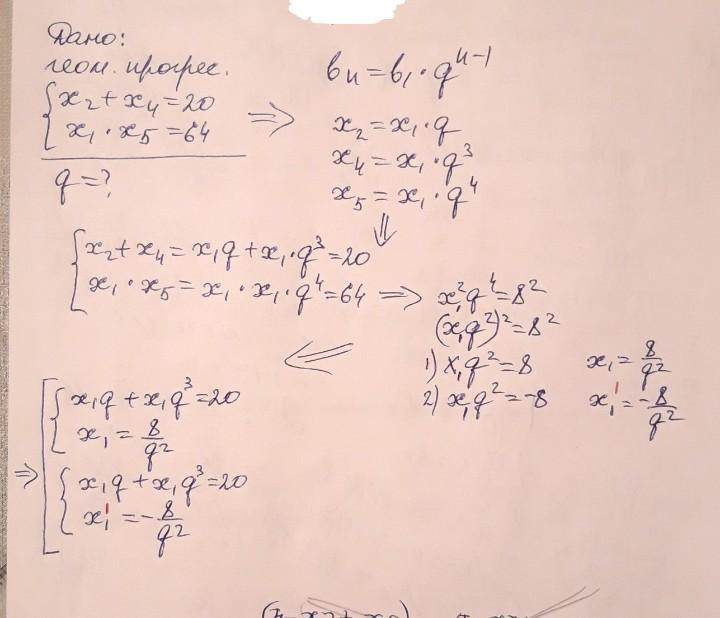 Дано:
геом. прогрес.
{ x₂ + x₄ = 20
x₁ · x₅ = 64 ⇒
q = ?
bₙ = b₁ · qⁿ⁻¹
x₂ = x₁ · q
x₄ = x₁ · q³
x₅ = x₁ · q⁴
⇓
{ x₂ + x₄ = x₁q + x₁ · q³ = 20
x₁ · x₅ = x₁ · x₁ · q⁴ = 64 ⇒ x₁²q⁴ = 8²
(x₁q²)² = 8²
1) x₁q² = 8 x₁ = 8/q²
2) x₁q² = -8 x₁' = -8/q²
⇐
⇒ [ { x₁q + x₁q³ = 20
x₁ = 8/q²
{ x₁q + x₁q³ = 20
x₁' = -8/q²